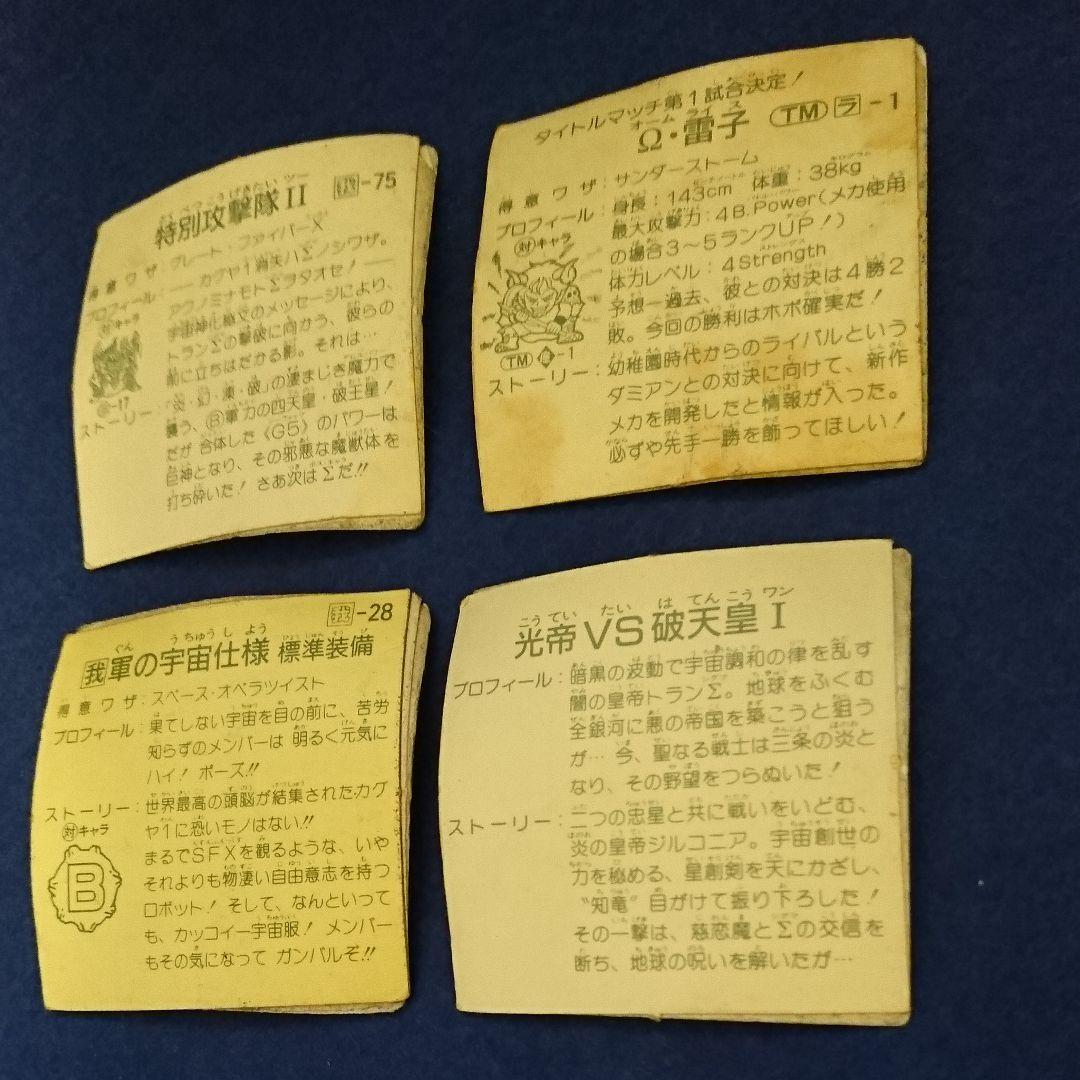 特別攻撃隊II -75
とくべつこうげきたい ツー
得意ワザ:グレート・ファイバーX
プロフィール:カグヤ1消失ハΣノシワザ。
アクノミナモトΣヲタオセ!
対キャラ
宇宙神化絵文のメッセージにより、
トランΣの撃破に向かう、彼らの
前に立ちはだかる影。それは…
-17
ストーリー:「炎・幻・漠・破」の凄まじき魔力で
襲う、B軍力の四天皇・破王星!
だが 合体した《G5》のパワーは
巨神となり、その邪悪な魔獣体を
打ち砕いた! さあ次はΣだ!!
タイトルマッチ第1試合決定!
オーム ライ ス
Ω・雷子 TM ラ-1
得意ワザ:サンダーストーム
プロフィール:身長:143cm 体重:38kg
最大攻撃力:4B.Power(メカ使用
の場合3〜5ランクUP!)
対キャラ
体力レベル:4Strength
予想一過去、彼との対決は4勝2
敗。今回の勝利はホボ確実だ!
TM -1
ストーリー:幼稚園時代からのライバルという
ダミアンとの対決に向けて、新作
メカを開発したと情報が入った。
必ずや先手一勝を飾ってほしい!
-28
ぐん うちゅうしよう ひょうじゅんそうび
我軍の宇宙仕様 標準装備
得意ワザ:スペース・オペラツイスト
プロフィール:果てしない宇宙を目の前に、苦労
知らずのメンバーは 明るく元気に
ハイ! ポーズ!!
ストーリー:世界最高の頭脳が結集されたカグ
ヤ1に恐いモノはない!!
対キャラ
まるでSFXを観るような、いや
それよりも物凄い自由意志を持つ
B
ロボット! そして、なんといって
も、カッコイー宇宙服! メンバー
もその気になって ガンバルぞ!!
こうてい たい は てんこう ワン
光帝VS破天皇I
プロフィール:暗黒の波動で宇宙調和の律を乱す
闇の皇帝トランΣ。地球をふくむ
全銀河に悪の帝国を築こうと狙う
が… 今、聖なる戦士は三条の炎と
なり、その野望をつらぬいた!
ストーリー:二つの忠星と共に戦いをいどむ、
炎の皇帝ジルコニア。宇宙創世の
力を秘める、星創剣を天にかざし、
"知竜" 目がけて振り下ろした!
その一撃は、慈恋魔とΣの交信を
断ち、地球の呪いを解いたが…